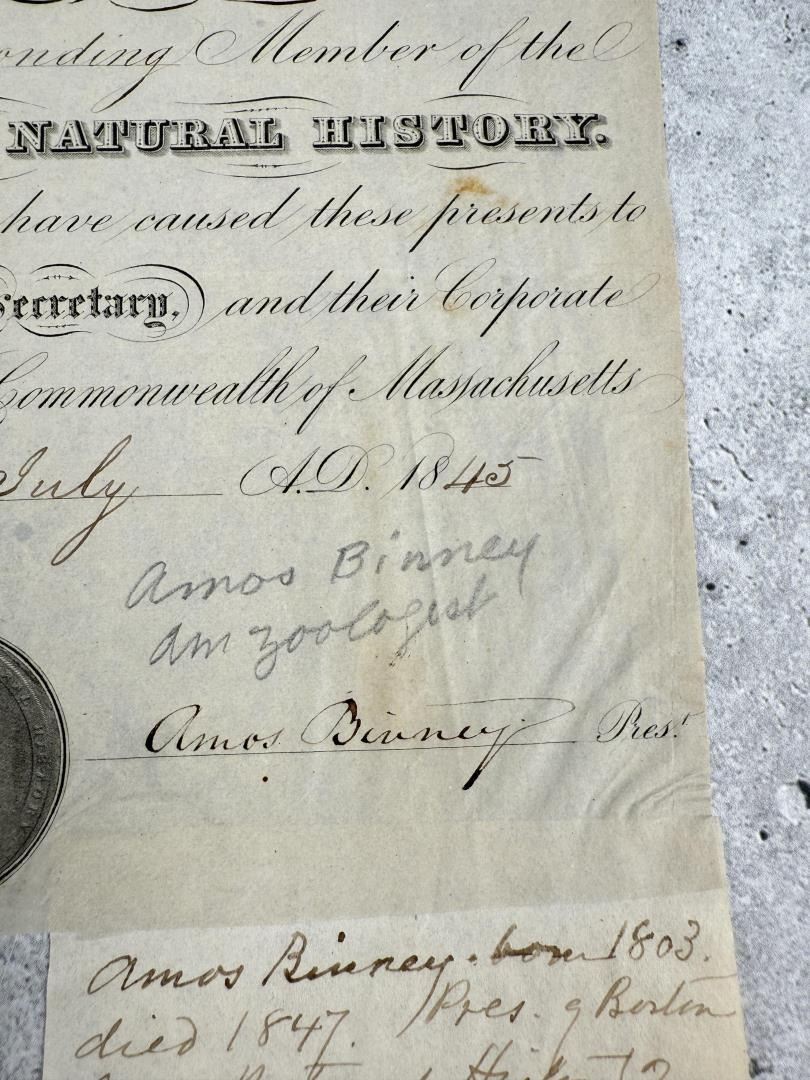 onding Member of the
NATURAL HISTORY.
have caused these presents to
Secretary, and their Corporate
Commonwealth of Massachusetts
July A.D. 1845
Amos Binney
Am zoologist
Amos Binney Prest
AL HISTORY
Amos Binney. born 1803.
died 1847. Pres. of Boston